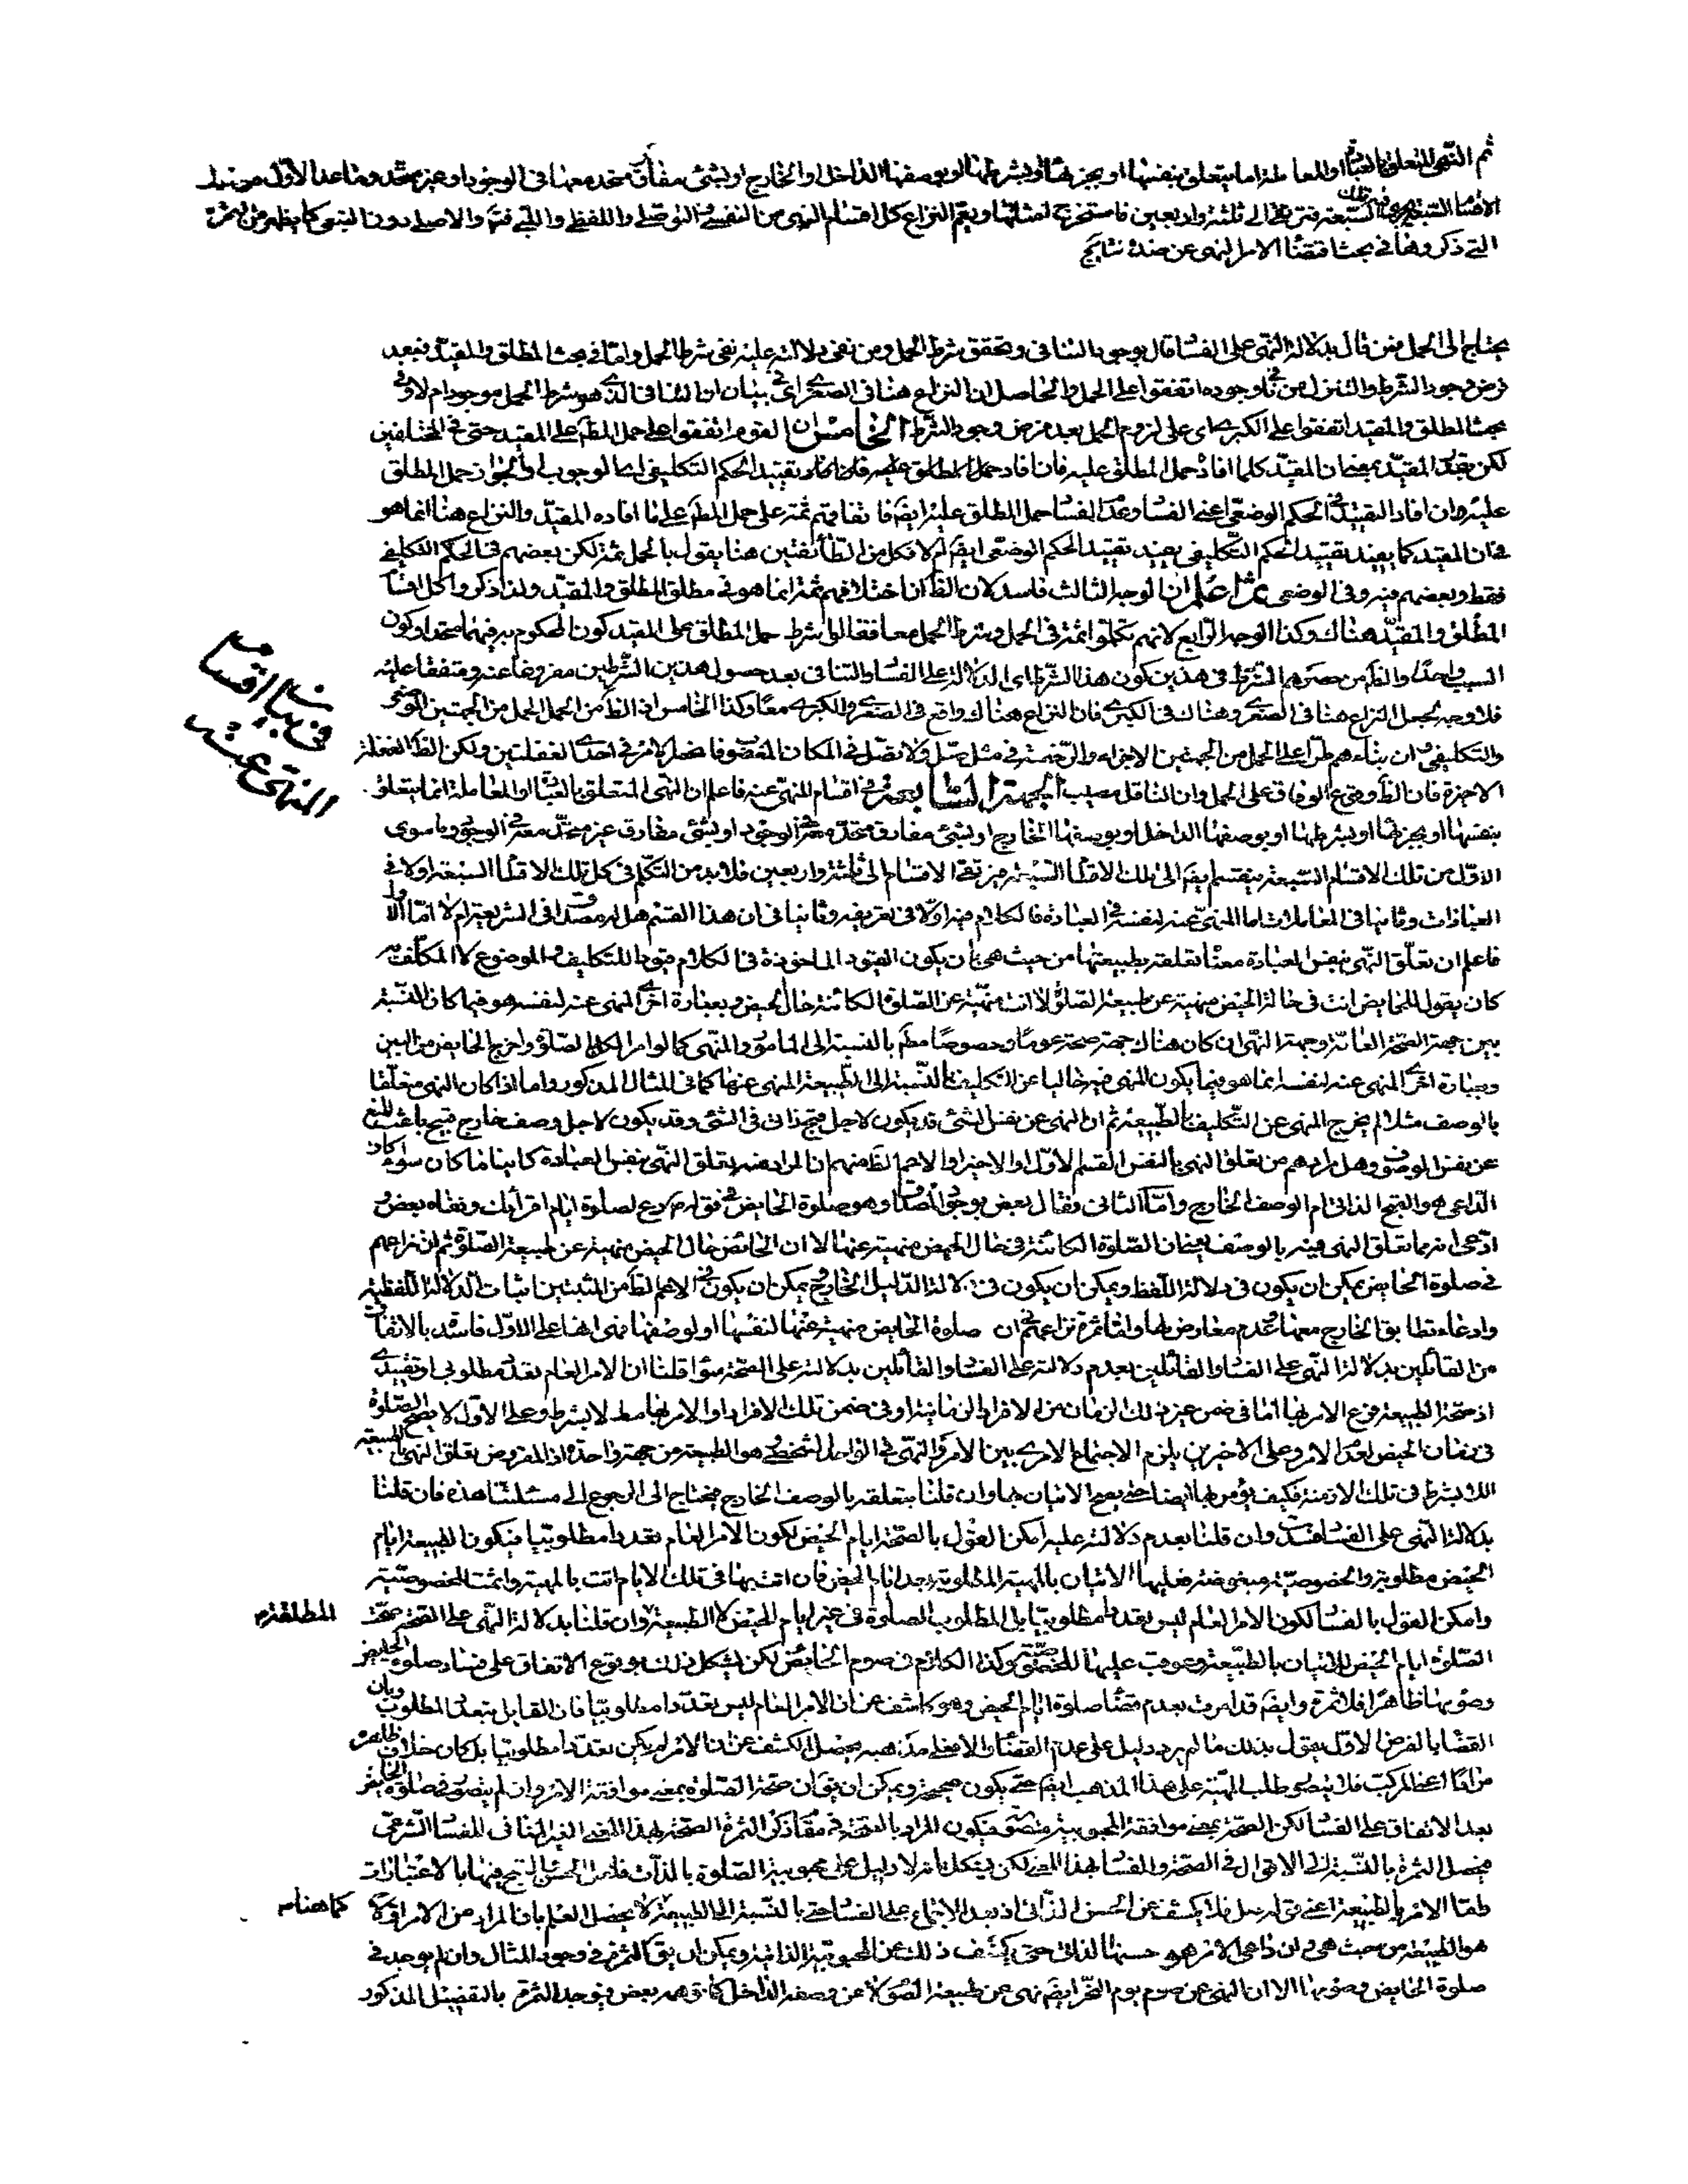 ثم النهى المتعلق بالعبادة او المعاملة اما يتعلق بنفسها او بجزئها او بشرطها او بوصفها الداخل او الخارج او بشئ مفارق متحد معها فى الوجود او غير متحد وما عدا الاول من تلك
الاقسام السبعة فترتقى الى ثلثة واربعين فاستخرج امثلتها ويعم النزاع كل اقسام النهى من النفسى والتوصلى واللفظى واللبى والاصلى دون التبعى كما يظهر من الثمرة
التى ذكروها فى بحث اقتضاء الامر النهى عن ضده نتايج
يحتاج الى الحمل فمن قال بدلالة النهى على الفساد قال بوجود التنافى وتحقق شرط الحمل ومن نفى دلالته عليه نفى شرط الحمل واما فى بحث المطلق والمقيد فبعد
فرض وجود الشرط والتنزل عن وجوده اتفقوا على الحمل والحاصل ان النزاع هنا فى الصغرى اى فى بيان ان التنافى الذى هو شرط الحمل موجود ام لا وفى
بحث المطلق والمقيد اتفقوا على الكبرى اى على لزوم الحمل بعد فرض وجود الشرط الخامس ان القوم اتفقوا على حمل المطلق على المقيد حتى فى المختلفين
لكن بقدر المقيد بمعنى ان المقيد كلما افاد حمل المطلق عليه فان افاد تقييد الحكم التكليفى اى الوجوب او الجواز حمل المطلق
عليه وان افاد التقييد فى الحكم الوضعى اعنى الفساد وعدم الفساد حمل المطلق عليه ايضا فاتفاقهم ثمة على حمل المطلق على ما افاده المقيد والنزاع هنا انما هو
فى ان المقيد كما يفيد تقييد الحكم التكليفى يفيد تقييد الحكم الوضعى ايضا ام لا فكل من الطائفتين هنا يقول بالحمل ثمة لكن بعضهم فى الحكم التكليفى
فقط وبعضهم فيه وفى الوضعى ثم اعلم ان الوجه الثالث فاسد لان الظ ان اختلافهم ثمة انما هو فى مطلق المطلق والمقيد ولذا ذكروا كل اقسام
المطلق والمقيد هناك وكذا الوجه الرابع لانهم تكلموا ثمة فى الحمل وشرط الحمل معا فقالوا بشرط حمل المطلق على المقيد كون المحكوم به فيهما متحدا وكون
السبب واحدا والظ من حصرهم الشرط فى هذين كون هذا الشرط اى الدلالة على الفساد والتنافى بعد حصول هذين الشرطين مفروغا عنه ومتفقا عليه
فلا وجه لجعل النزاع هنا فى الصغرى وهناك فى الكبرى فان النزاع هناك واقع فى الصغرى والكبرى معا وكذا الخامس اذ الظ من الحمل الحمل من الجهتين الوضعى
والتكليفى ان بناءهم طرا على الحمل من الجهتين الاجزاء والرخصة فى مثل صل ولا تصل فى المكان المغصوب فاحصل الامر فى احدى الغفلتين ولكن الظ الغفلة
الاخيرة فان الظ وقوع الوفاق على الحمل وان الناقل مصيب الجهة السابعة فى اقسام المنهى عنه فاعلم ان النهى المتعلق بالعبادة او المعاملة انما يتعلق
بنفسها او بجزئها او بشرطها او بوصفها الداخل او بوصفها الخارج او بشئ مفارق متحد معه فى الوجود او بشئ مفارق غير متحد معه فى الوجود وما سوى
الاول من تلك الاقسام السبعة ينقسم ايضا الى تلك الاقسام السبعة فيرتقى الاقسام الى ثلثة واربعين فلا بد من التكلم فى كل تلك الاقسام السبعة اولا فى
العبادات وثانيا فى المعاملات اما المنهى عنه لنفسه فى العبادة فالكلام فيه اولا فى تعريفه وثانيا فى ان هذا القسم هل له مصداق فى الشريعة ام لا اما الاول
فاعلم ان تعلق النهى بنفس العبادة معناه تعلقه بطبيعتها من حيث هى بان يكون القيود الماخوذة فى الكلام قيودا للتكليف والموضوع لا المكلف به
كان يقول للحايض انت فى حالة الحيض منهية عن طبيعة الصلوة لا انت منهية عن الصلوة الكائنة حال الحيض وبعبارة اخرى المنهى عنه لنفسه هو فيما كان النسبة
بين جهة الصحة العامة وجهة النهى ان كان هناك جهة صحة عموما وخصوصا مطلقا بالنسبة الى المامور والمنهى كما لو امر الكل بالصلوة واخرج الحايض من البين
وبعبارة اخرى المنهى عنه لنفسه انما هو فيما يكون المنهى فيه خاليا عن التكليف بالنسبة الى الطبيعة المنهى عنها كما فى المثال المذكور واما اذا كان النهى متعلقا
بالوصف مثلا لم يخرج المنهى عن التكليف بالطبيعة ثم ان النهى عن نفس الشئ قد يكون لاجل قبح ذاتى فى الشئ وقد يكون لاجل وصف خارج قبيح باعث للنهى
عن نفس الموصوف وهل مرادهم من تعلق النهى بالنفس القسم الاول او الاخير او الاعم الظ منهم ان المراد منه تعلق النهى بنفس العبادة كائنا ما كان سواء كان
الداعى هو القبح الذاتى ام الوصف الخارج واما الثانى فقال بعض بوجود المصداق وهو صلوة الحايض فى قوله دعى الصلوة ايام اقرائك ونفاه بعض و
ادعى انه مما تعلق النهى فيه بالوصف بمعنى ان الصلوة الكائنة فى حال الحيض منهية عنها لا ان الحائض حال الحيض منهية عن طبيعة الصلوة ثم ان نزاعهم
فى صلوة الحايض يمكن ان يكون فى دلالة اللفظ ويمكن ان يكون فى دلالة الدليل الخارج ويمكن ان يكون فى الاعم الظ من المثبتين اثبات الدلالة اللفظية
وادعاء تطابق الخارج معها وعدم معارض لها واما ثمرة نزاعهم فى ان صلوة الحايض منهية عنها لنفسها او لوصفها فهى انها على الاول فاسد بالاتفاق
من القائلين بدلالة النهى على الفساد والقائلين بعدم دلالته على الفساد والقائلين بدلالته على الصحة سواء قلنا ان الامر العام بتعدد مطلوبى او تقييدى
اذ صحة الطبيعة فرع الامر بها اما فى ضمن غير ذلك الزمان من الافراد الزمانية او فى ضمن تلك الافراد او الامر بها مط لا بشرط وعلى الاول لا يصح الصلوة
فى زمان الحيض لعدم الامر وعلى الاخيرين يلزم الاجتماع الامرى بين الامر والنهى فى الواحد الشخصى وهو الطبيعة من جهة واحدة اذ المفروض تعلق النهى بالطبيعة
اللا بشرط فى تلك الازمنة فكيف يؤمر بها ايضا حتى يصح الاتيان بها وان قلنا بتعلقه بالوصف الخارج فيحتاج الى الرجوع الى مسئلتنا هذه فان قلنا
بدلالة النهى على الفساد فسدت وان قلنا بعدم دلالته عليه امكن القول بالصحة ايام الحيض لكون الامر العام بتعدد مطلوبيا فيكون الطبيعة ايام
الحيض مطلوبة والخصوصية مبغوضة فعليها الاتيان بالمهية المطلوبة ايام الحيض فان اتت بها فى تلك الايام اتت بالمهية واثمت للخصوصية
وامكن القول بالفساد لكون الامر العام ليس بتعدد مطلوبيا بل المطلوب الصلوة فى غير ايام الحيض لا الطبيعة وان قلنا بدلالة النهى على الصحة صحت
الصلوة ايام الحيض للاتيان بالطبيعة وعوقبت عليها للخصوصية وكذا الكلام فى صوم الحائض لكن يشكل ذلك بوقوع الاتفاق على فساد صلوة الحايض
وصومها ظاهرا فلا ثمرة وايضا قد امرت بعدم قضاء صلوة ايام الحيض وهو كاشف عن ان الامر العام ليس بتعدد مطلوبيا فان القايل بتعدد المطلوب وبان
القضاء بالفرض الاول يقول بذلك ما لم يرد دليل على عدم القضاء والا فعلى مذهبه يحصل الكشف عن ان الامر لم يكن بتعدد مطلوبيا بل كان خلاف ظاهره
مرادا اعنى المركب فلا يتصور طلب المهية على هذا المذهب ايضا حتى يكون صحيحة ويمكن ان يق ان صحة الصلوة بمعنى موافقة الامر وان لم يتصور فى صلوة الحايض
بعد الاتفاق على الفساد لكن الصحة بمعنى موافقة المحبوبية متصور فيكون المراد بالصحة فى مقام ذكر الثمرة الصحة بهذا المعنى الغير المنافى للفساد الشرعى
فيحصل الثمرة بالنسبة الى الاقوال فى الصحة والفساد بهذا المعنى لكن يشكل بانه لا دليل على محبوبية الصلوة بالذات فلعل الحسن والقبح فيها بالاعتبارات
هو الطبيعة من حيث هى وان داعى الامر هو حسنها الذاتى حتى يكشف ذلك عن المحبوبية الذاتية ويمكن ان يق الثمرة فى وجود المثال وان لم يوجد فى
صلوة الحايض وصومها الا ان النهى عن صوم يوم النحر ايضا نهى عن طبيعة الصوم لا عن وصفه الداخل كما توهمه بعض فيوجد الثمرة بالتفصيل المذكور
فى بيان اقسام
المنهى عنه
المطلقة م
كما هنا م